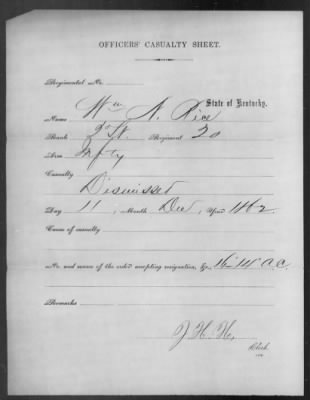 OFFICERS' CASUALTY SHEET.
Regimental No.
State of Kentucky.
Name Wm N. Rice
Rank 2" Lt. Regiment 20
Arm Infty
Casualty
Dismissed
Day 11, Month Dec, Year 1862
Cause of casualty
No. and name of the order accepting resignation, &c. 16" 14" A.C.
Remarks
J. H. H.,
Clerk.